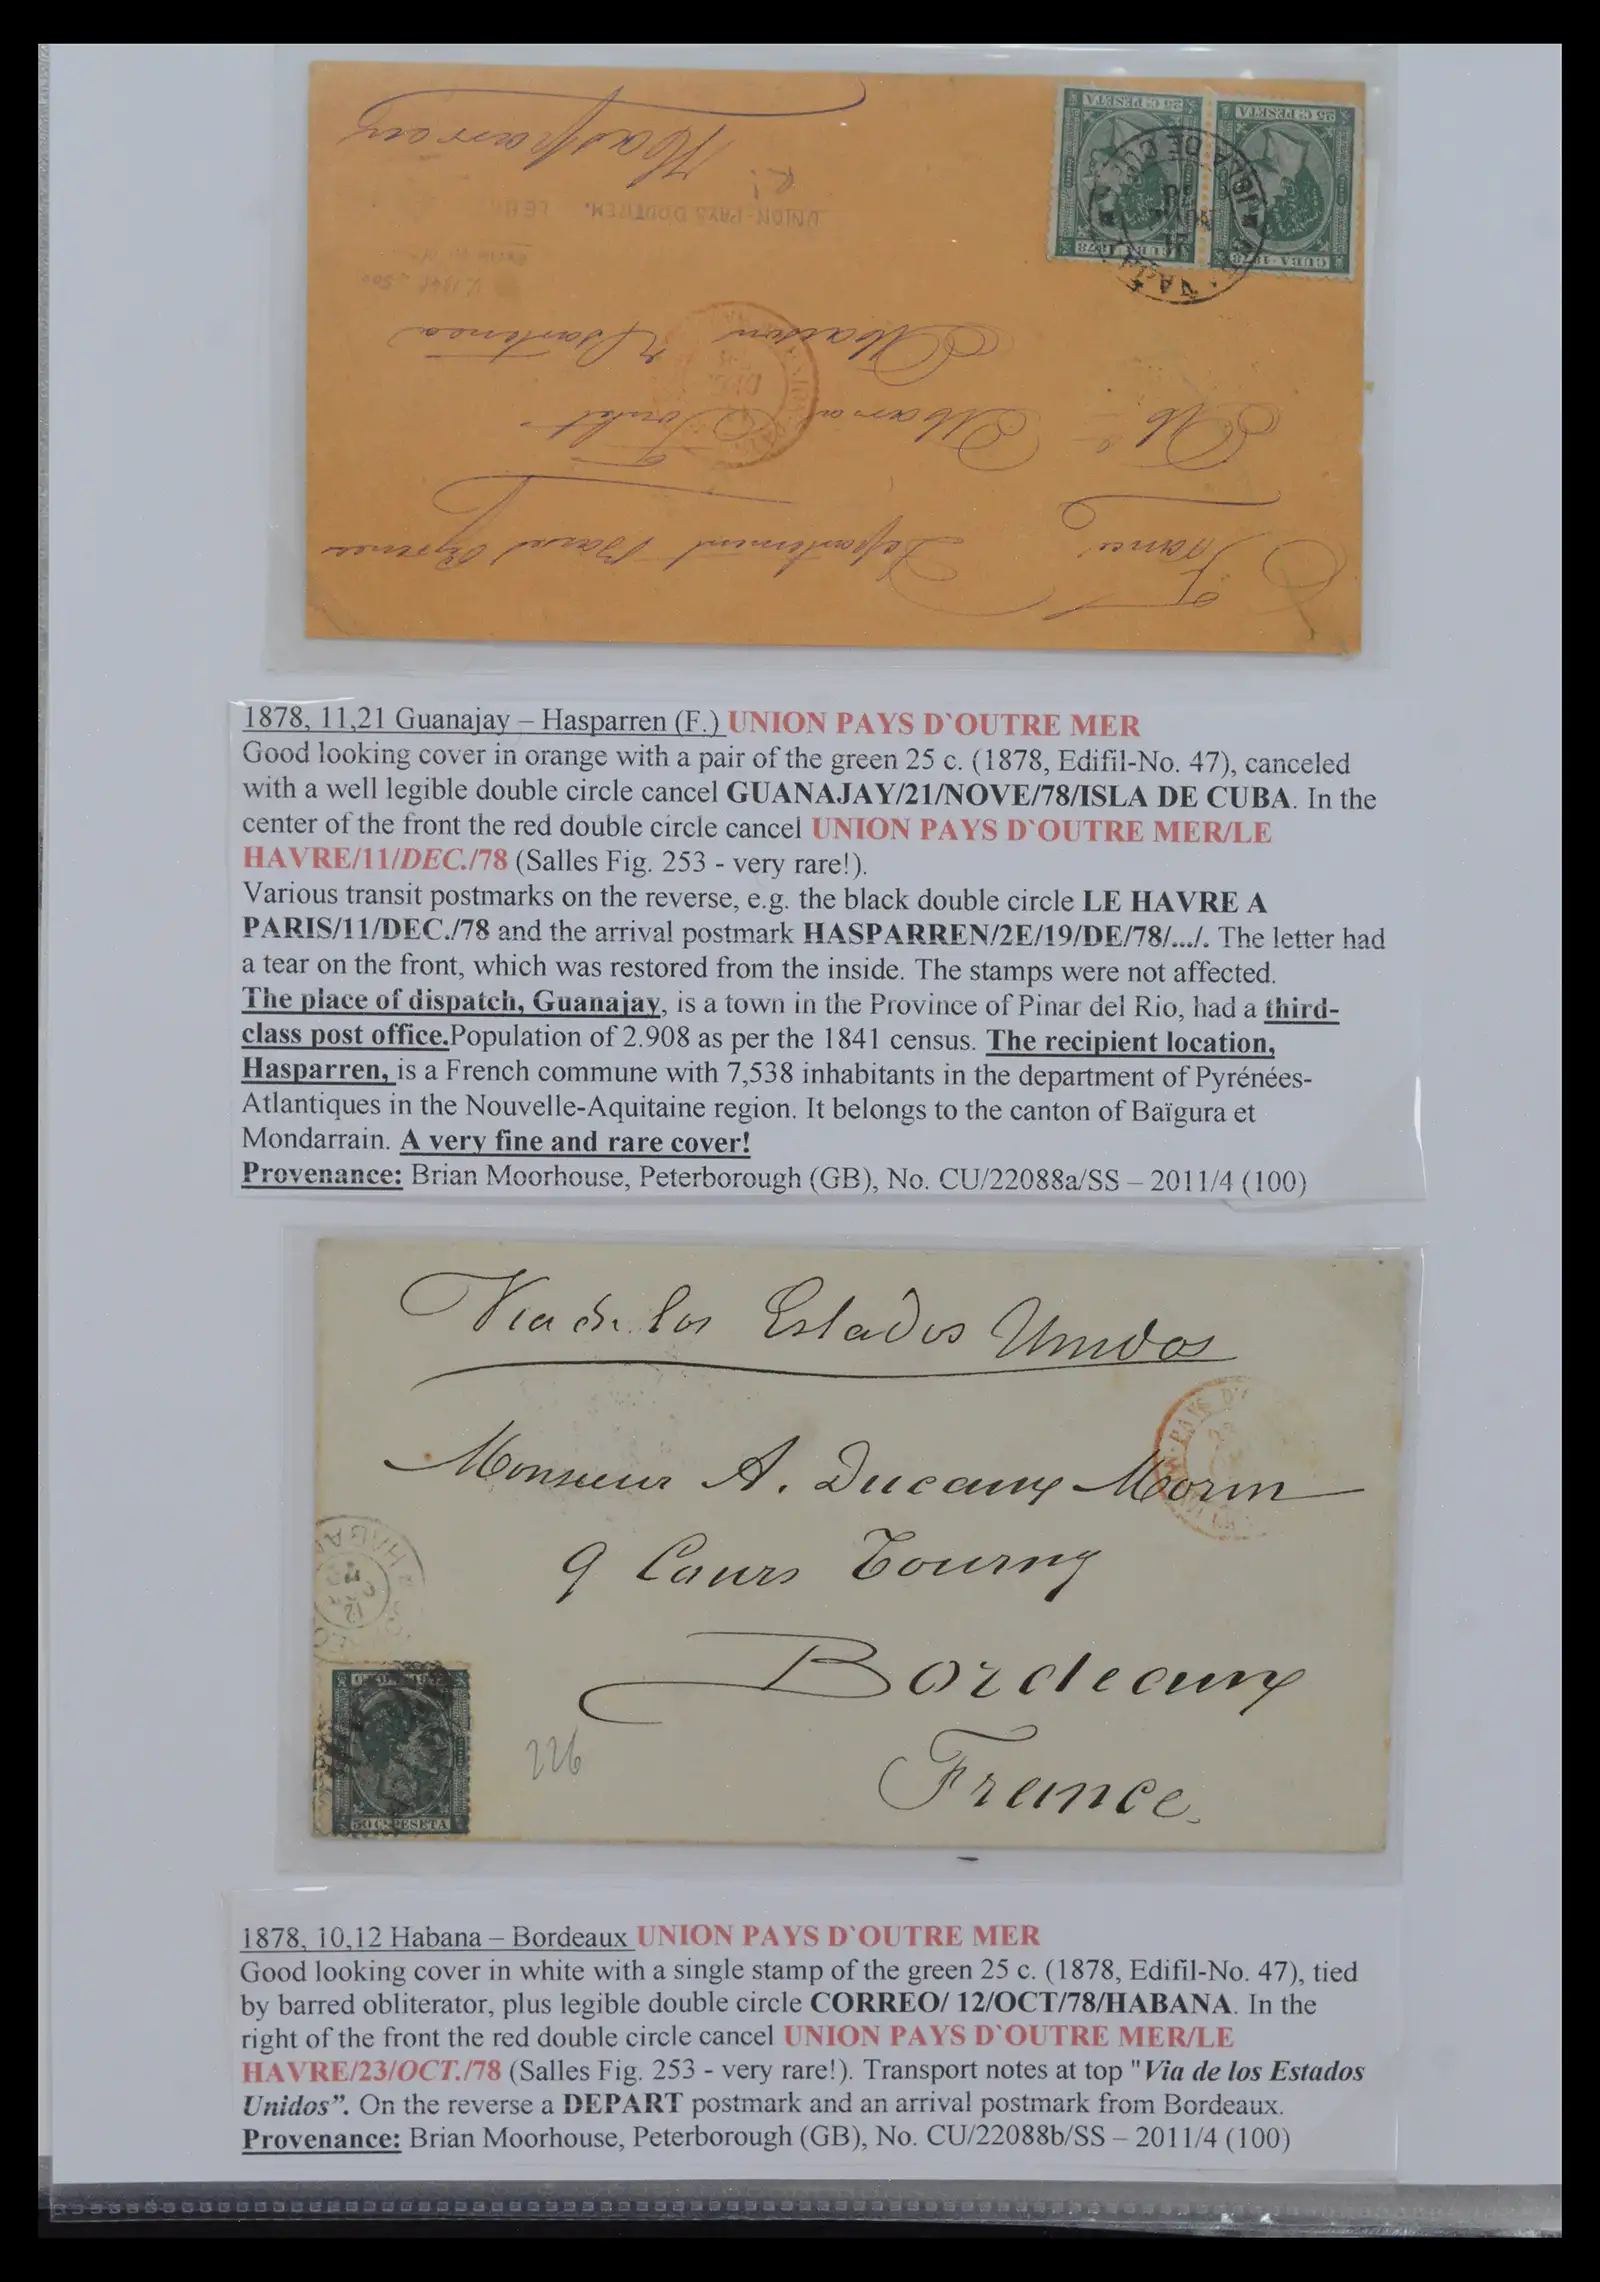 France Departement Basses Pyrenees
Maison
Hasparren
R!
UNION-PAYS D'OUTREM. LE H
CUBA·1878
25 C. PESETA
CUBA·1878
25 C. PESETA
21
NOV
78
ISLA DE CUBA
DEC
1878, 11,21 Guanajay – Hasparren (F.) UNION PAYS D`OUTRE MER
Good looking cover in orange with a pair of the green 25 c. (1878, Edifil-No. 47), canceled
with a well legible double circle cancel GUANAJAY/21/NOVE/78/ISLA DE CUBA. In the
center of the front the red double circle cancel UNION PAYS D`OUTRE MER/LE
HAVRE/11/DEC./78 (Salles Fig. 253 - very rare!).
Various transit postmarks on the reverse, e.g. the black double circle LE HAVRE A
PARIS/11/DEC./78 and the arrival postmark HASPARREN/2E/19/DE/78/.../. The letter had
a tear on the front, which was restored from the inside. The stamps were not affected.
The place of dispatch, Guanajay, is a town in the Province of Pinar del Rio, had a third-
class post office.Population of 2.908 as per the 1841 census. The recipient location,
Hasparren, is a French commune with 7,538 inhabitants in the department of Pyrénées-
Atlantiques in the Nouvelle-Aquitaine region. It belongs to the canton of Baïgura et
Mondarrain. A very fine and rare cover!
Provenance: Brian Moorhouse, Peterborough (GB), No. CU/22088a/SS – 2011/4 (100)
Via de los Estados Unidos
PAYS D'
Monsieur A. Ducaux Morin
9 Cours Tourny
HABAN
12
Bordeaux
France.
50 CS PESETA
226
1878, 10,12 Habana – Bordeaux UNION PAYS D`OUTRE MER
Good looking cover in white with a single stamp of the green 25 c. (1878, Edifil-No. 47), tied
by barred obliterator, plus legible double circle CORREO/ 12/OCT/78/HABANA. In the
right of the front the red double circle cancel UNION PAYS D`OUTRE MER/LE
HAVRE/23/OCT./78 (Salles Fig. 253 - very rare!). Transport notes at top "Via de los Estados
Unidos”. On the reverse a DEPART postmark and an arrival postmark from Bordeaux.
Provenance: Brian Moorhouse, Peterborough (GB), No. CU/22088b/SS – 2011/4 (100)